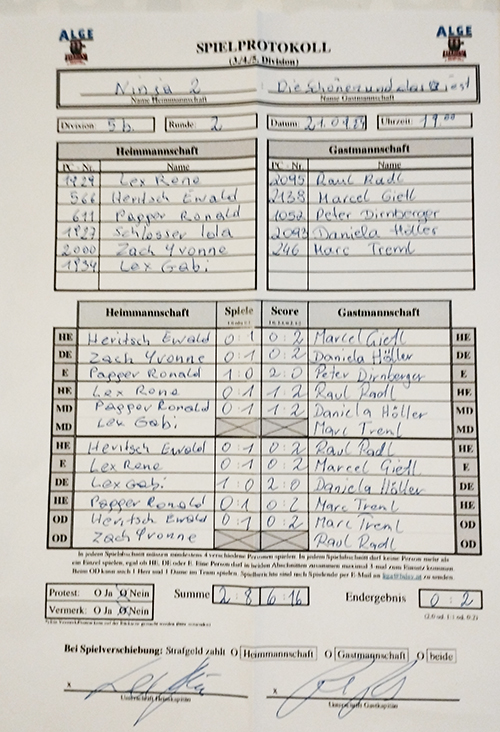 ALGE ALGE
SPIELPROTOKOLL
(3./4./5. Division)
Ninja 2 Die Schönen und das Biest
Name Heimmannschaft Name Gastmannschaft
Division: 5b. Runde: 2 Datum: 21.09.24 Uhrzeit: 19.00
Heimmannschaft Gastmannschaft
PC - Nr. Name PC - Nr. Name
1929 Lex Rene 2095 Raul Radl
566 Heritsch Ewald 2138 Marcel Gießl
611 Papper Ronald 1052 Peter Dirnberger
1927 Schlosser Iola 2093 Daniela Höller
2000 Zach Yvonne 246 Marc Treml
1934 Lex Gabi
Heimmannschaft Spiele Score Gastmannschaft
HE Heritsch Ewald 0:1 0:2 Marcel Gießl HE
DE Zach Yvonne 0:1 0:2 Daniela Höller DE
E Papper Ronald 1:0 2:0 Peter Dirnberger E
HE Lex Rene 0:1 1:2 Raul Radl HE
MD Papper Ronald 0:1 1:2 Daniela Höller MD
MD Lex Gabi Marc Treml MD
HE Heritsch Ewald 0:1 0:2 Raul Radl HE
E Lex Rene 0:1 0:2 Marcel Gießl E
DE Lex Gabi 1:0 2:0 Daniela Höller DE
HE Papper Ronald 0:1 0:2 Marc Treml HE
OD Heritsch Ewald 0:1 0:2 Marc Treml OD
OD Zach Yvonne Raul Radl OD
In jedem Spielabschnitt müssen mindestens 4 verschiedene Personen spielen. In jedem Spielabschnitt darf keine Person mehr als
ein Einzel spielen, egal ob HE, DE oder E. Eine Person darf in beiden Abschnitten zusammen maximal 3 mal zum Einsatz kommen.
Beim OD kann auch 1 Herr und 1 Dame im Team spielen. Spielberichte sind nach Spielende per E-Mail an zu senden.
Protest: O Ja O Nein Summe 2:8 6:16 Endergebnis 0:2
Vermerk: O Ja O Nein (2:0 od. 1:1 od. 0:2)
Bei Spielverschiebung: Strafgeld zahlt O Heimmannschaft O Gastmannschaft O beide
x x
Unterschrift Heimkapitän Unterschrift Gastkapitän